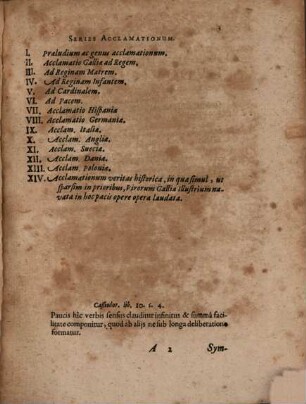 SERIES ACCLAMATIONUM.
I. Præludium ac genus acclamationum,
II. Acclamatio Galliæ ad Regem,
III. Ad Reginam Matrem.
IV. Ad Reginam Infantem,
V. Ad Cardinalem,
VI. Ad Pacem.
VII. Acclamatio Hispaniæ
VIII. Acclamatio Germaniæ,
IX. Acclam. Italiæ,
X. Acclam. Angliæ
XI. Acclam. Sueciæ
XII. Acclam. Daniæ,
XIII. Acclam. Poloniæ,
XIV. Acclamationum veritas historica, in qua simul, ut
sparsim in prioribus, Virorum Galliæ illustrium na-
vata in hoc pacis opere opera laudata.
Cassiodor. lib. 10. c. 4.
Paucis hîc verbis sensus clauditur infinitus & summâ faci-
litate componitur, quod ab aliis ne sub longa deliberatione
formatur.
A 2 Sym-